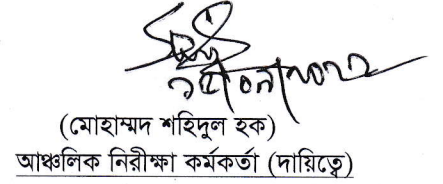 (মোহাম্মদ শহিদুল হক)
আঞ্চলিক নিরীক্ষা কর্মকর্তা (দায়িত্বে)